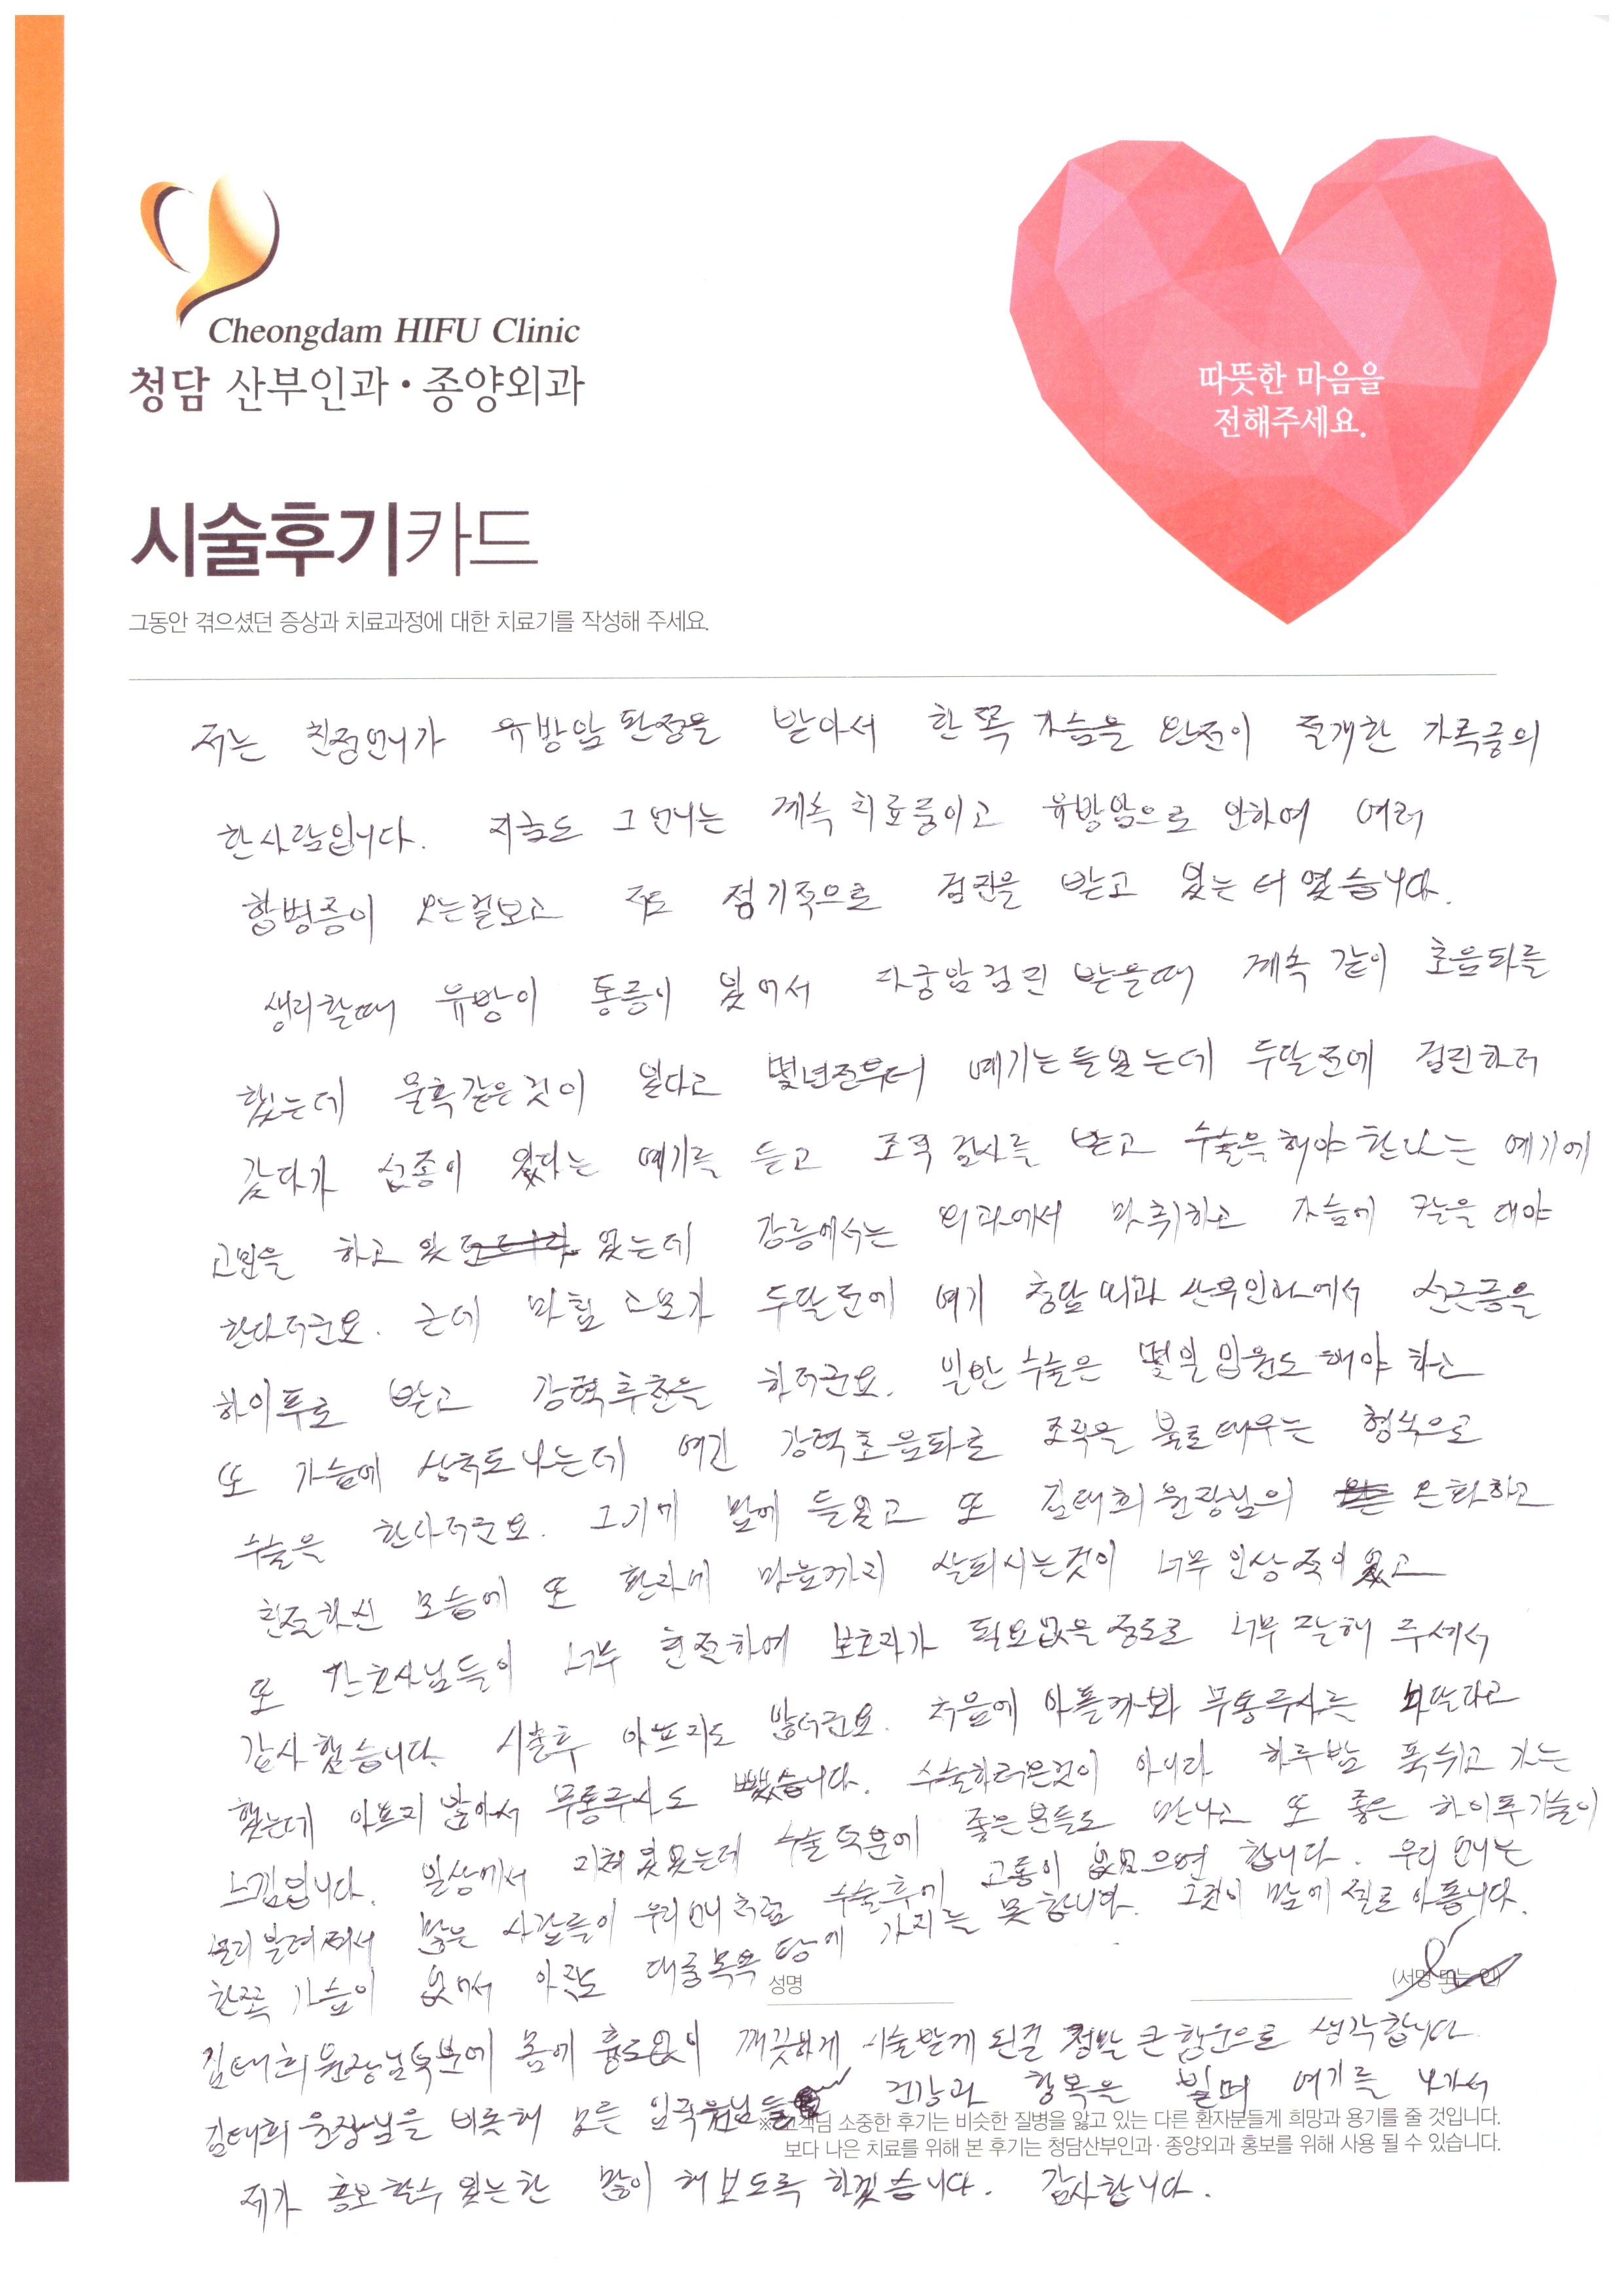 Cheongdam HIFU Clinic
청담 산부인과·종양외과
따뜻한 마음을
전해주세요.
시술후기카드
그동안 겪으셨던 증상과 치료과정에 대한 치료기를 작성해 주세요.
저는 친정언니가 유방암 판정을 받아서 한쪽 가슴을 완전이 절개한 가족중의
한사람입니다. 지금도 그 언니는 계속 치료중이고 유방암으로 인하여 여러
합병증이 오는걸보고 저도 정기적으로 검진을 받고 있는 터였습니다.
생리할때 유방이 통증이 있어서 자궁암검진 받을때 계속 같이 초음파를
했는데 물혹같은것이 있다고 몇년전부터 얘기는 들었는데 두달전에 검진하러
갔다가 선종이 있다는 얘기를 듣고 조직검사를 받고 수술을 해야한다는 얘기에
고민을 하고 있 었는데 강릉에서는 외과에서 마취하고 가슴에 칼을 대야
한다더군요. 근데 마침 고모가 두달전에 여기 청담외과 산부인과에서 선근증을
하이푸로 받고 강력추천을 하더군요. 일반 수술은 몇일 입원도 해야 하고
또 가슴에 상처도 나는데 여긴 강력초음파로 조직을 불로 태우는 형식으로
수술을 한다더군요. 그기에 맘에 들었고 또 김태희 원장님의 온화하고
친절하신 모습에 또 환자에 마음까지 살피시는것이 너무 인상적이었고
또 간호사님들이 너무 친절하여 보호자가 필요없을정도로 너무 잘해 주셔서
감사했습니다. 시술후 아프지도 않더군요. 처음에 아플까봐 무통주사를 놔달라고
했는데 아프지 않아서 무통주사도 뺐습니다. 수술하러온것이 아니라 하루밤 푹쉬고 가는
느낌입니다. 일상에서 지쳐있었는데 수술덕분에 좋은분들도 만나고 또 좋은 하이푸기술이
널리 알려져서 많은 사람들이 우리언니처럼 수술후에 고통이 없었으면 합니다. 우리 언니는
한쪽 가슴이 없어서 아직도 대중목욕탕에 가지를 못합니다. 그것이 맘에 젤로 아픕니다.
성명 (서명 또는 인)
김태희원장님덕분에 몸에 흉도없이 깨끗하게 시술받게 된걸 정말 큰 행운으로 생각합니다
김태희 원장님을 비롯해 모든 임직원님들 건강과 행복을 빌며 여기를 나가서
※ 고객님 소중한 후기는 비슷한 질병을 앓고 있는 다른 환자분들게 희망과 용기를 줄 것입니다.
보다 나은 치료를 위해 본 후기는 청담산부인과·종양외과 홍보를 위해 사용 될 수 있습니다.
제가 홍보할수 있는한 많이 해보도록 하겠습니다. 감사합니다.